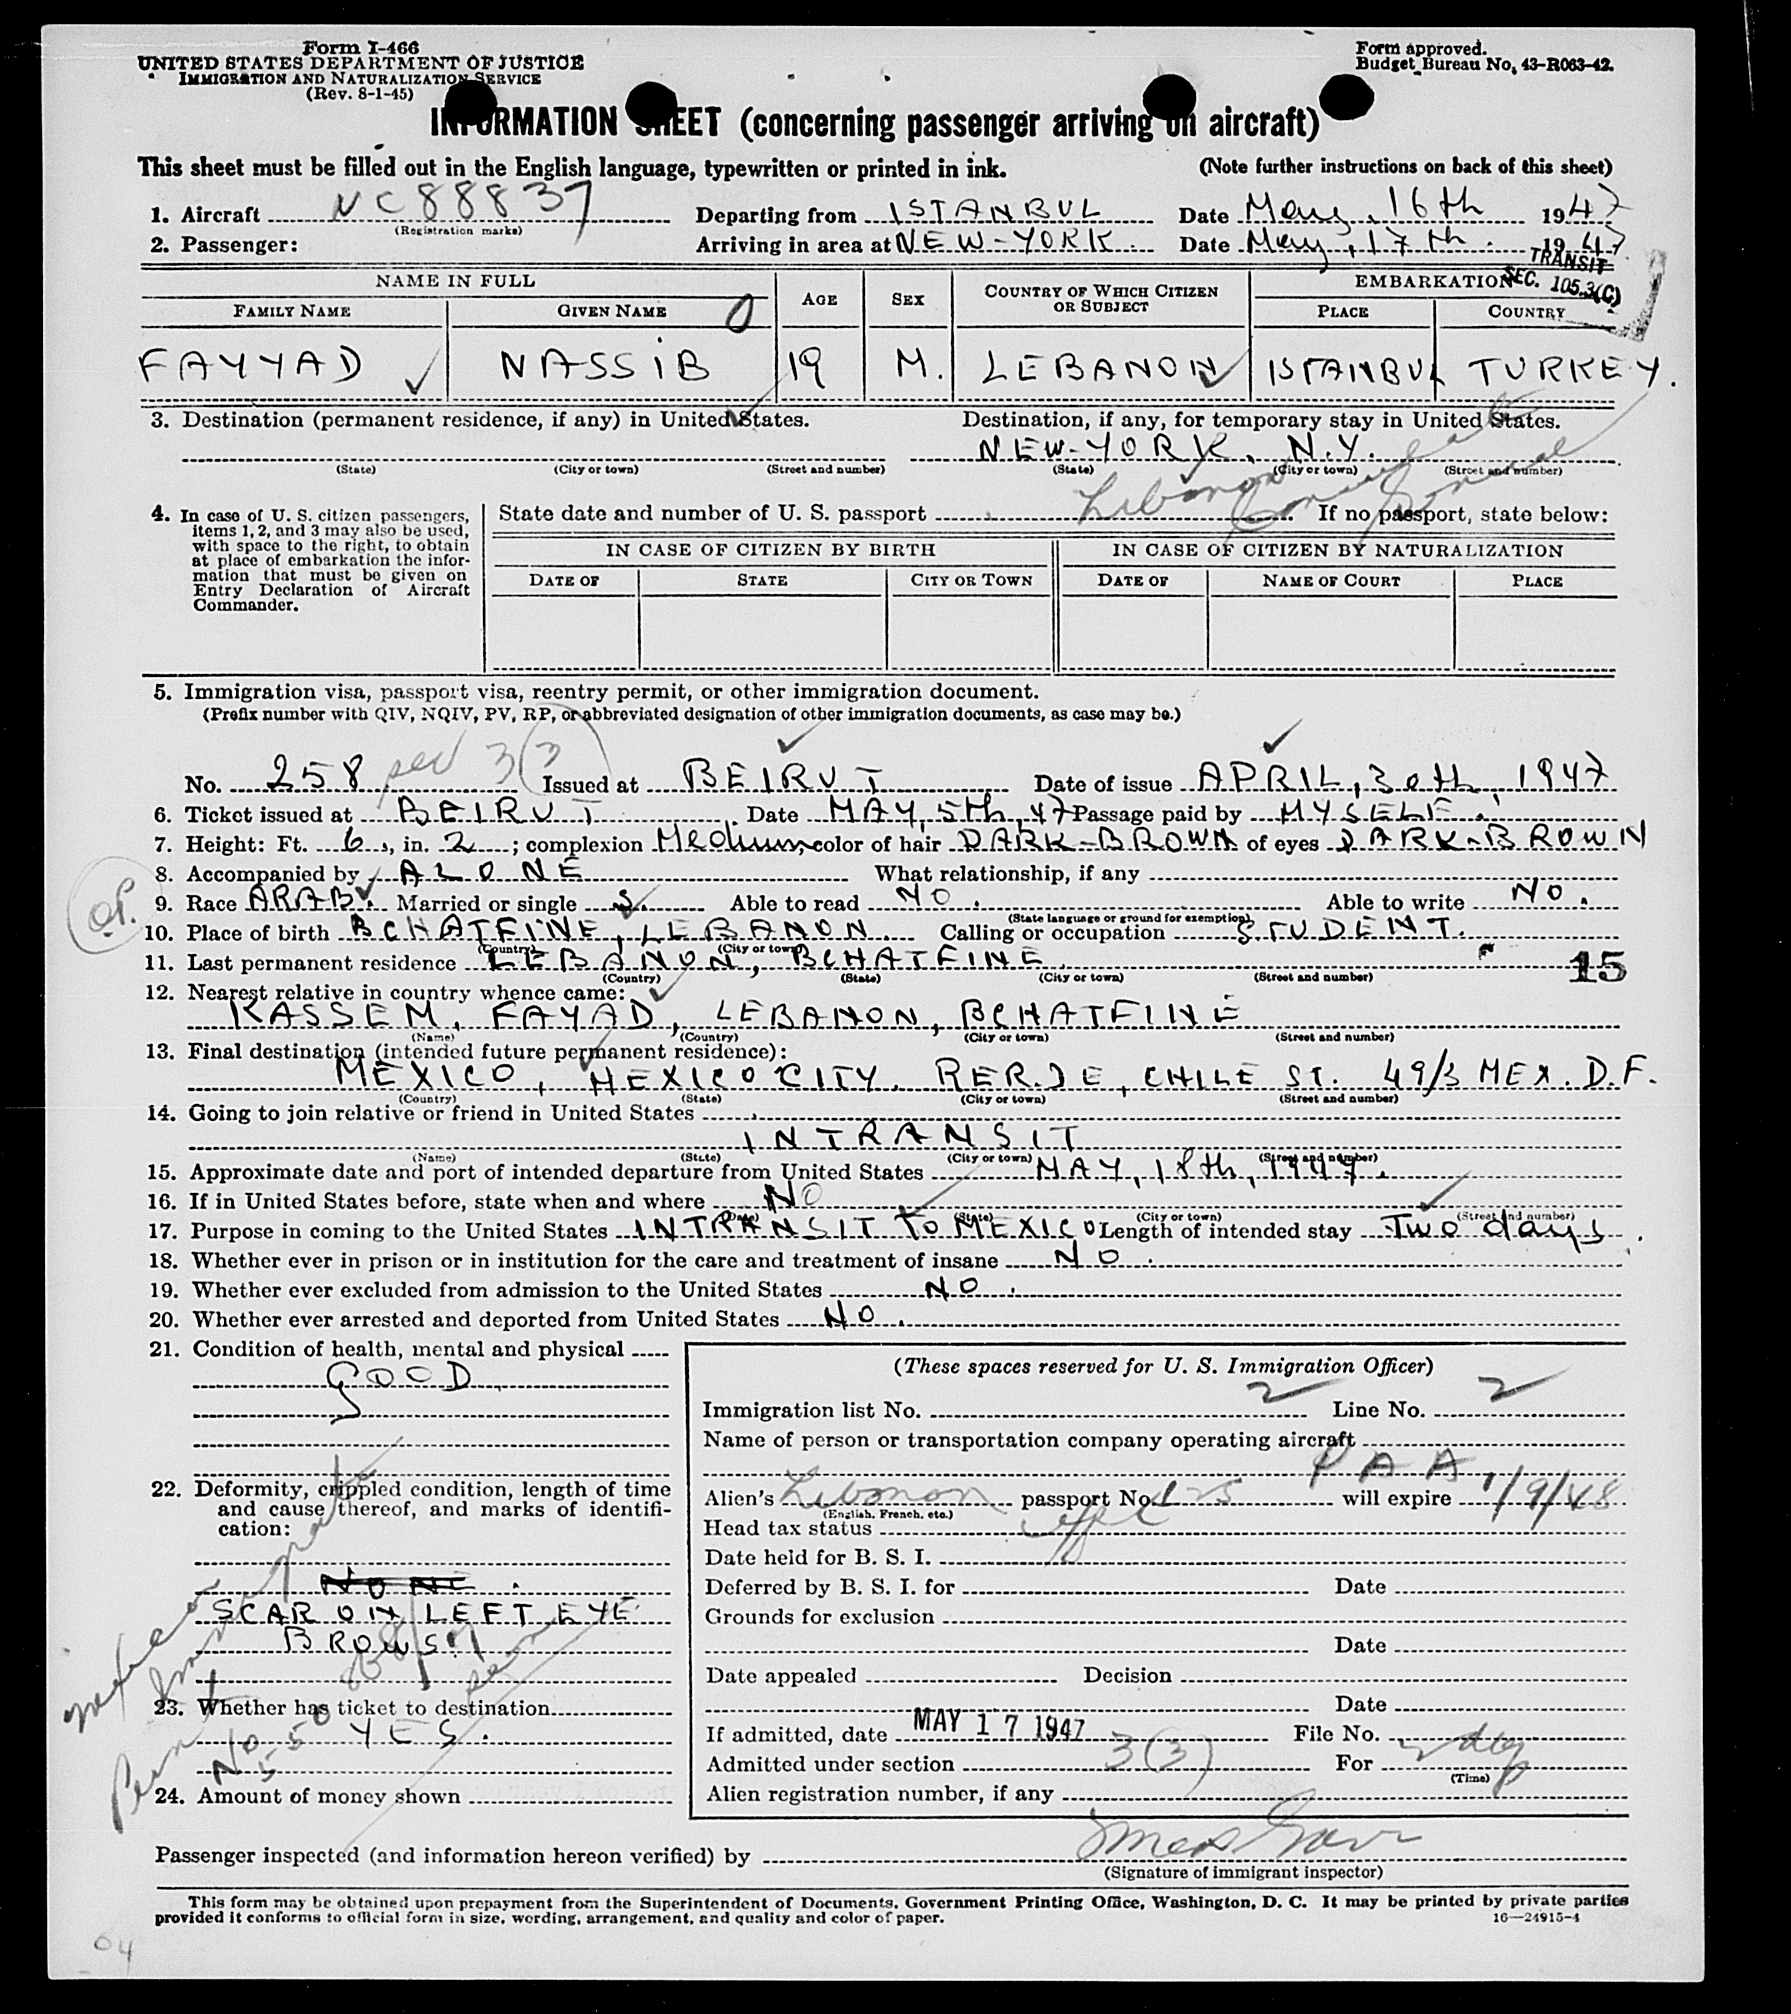 Form I-466
UNITED STATES DEPARTMENT OF JUSTICE
IMMIGRATION AND NATURALIZATION SERVICE
(Rev. 8-1-45)
Form approved.
Budget Bureau No. 43-R063-42.
INFORMATION SHEET (concerning passenger arriving on aircraft)
This sheet must be filled out in the English language, typewritten or printed in ink. (Note further instructions on back of this sheet)
1. Aircraft NC88837 Departing from ISTANBUL Date May, 16th 1947
(Registration marks)
2. Passenger: Arriving in area at NEW-YORK. Date May, 17th. 1947
TRANSIT
SEC. 105.3(C)
NAME IN FULL AGE SEX COUNTRY OF WHICH CITIZEN OR SUBJECT EMBARKATION
FAMILY NAME GIVEN NAME PLACE COUNTRY
FAYYAD NASSIB 19 M. LEBANON ISTANBUL TURKEY.
3. Destination (permanent residence, if any) in United States. Destination, if any, for temporary stay in United States.
NEW-YORK, N.Y.
(State) (City or town) (Street and number) (State) (City or town) (Street and number)
Lebanon Consulate General
4. In case of U. S. citizen passengers, items 1, 2, and 3 may also be used, with space to the right, to obtain at place of embarkation the information that must be given on Entry Declaration of Aircraft Commander.
State date and number of U. S. passport If no passport, state below:
IN CASE OF CITIZEN BY BIRTH IN CASE OF CITIZEN BY NATURALIZATION
DATE OF STATE CITY OR TOWN DATE OF NAME OF COURT PLACE
5. Immigration visa, passport visa, reentry permit, or other immigration document.
(Prefix number with QIV, NQIV, PV, RP, or abbreviated designation of other immigration documents, as case may be.)
No. 258 sec 3(3) Issued at BEIRUT Date of issue APRIL, 30th, 1947
6. Ticket issued at BEIRUT. Date MAY, 5th, 47 Passage paid by MYSELF.
7. Height: Ft. 6, in. 2; complexion Medium; color of hair DARK-BROWN of eyes DARK-BROWN
8. Accompanied by ALONE What relationship, if any
9. Race ARAB. Married or single S. Able to read NO. Able to write NO.
(State language or ground for exemption)
10. Place of birth BCHATFINE, LEBANON. Calling or occupation STUDENT.
(Country) (City or town)
11. Last permanent residence LEBANON, BCHATFINE. 15
(Country) (State) (City or town) (Street and number)
12. Nearest relative in country whence came:
KASSEM, FAYAD, LEBANON, BCHATFINE
(Name) (Country) (City or town) (Street and number)
13. Final destination (intended future permanent residence):
MEXICO, MEXICO CITY. RER.DE, CHILE ST. 49/3 MEX. D.F.
(Country) (State) (City or town) (Street and number)
14. Going to join relative or friend in United States
INTRANSIT
(Name) (State) (City or town) (Street and number)
15. Approximate date and port of intended departure from United States MAY, 18th, 1947.
16. If in United States before, state when and where NO
(Date) (State) (City or town) (Street and number)
17. Purpose in coming to the United States INTRANSIT TO MEXICO Length of intended stay Two days.
18. Whether ever in prison or in institution for the care and treatment of insane NO.
19. Whether ever excluded from admission to the United States NO.
20. Whether ever arrested and deported from United States NO.
21. Condition of health, mental and physical
GOOD
22. Deformity, crippled condition, length of time and cause thereof, and marks of identification:
NONE.
SCAR ON LEFT EYE
BROWS.
23. Whether has ticket to destination
YES.
24. Amount of money shown
(These spaces reserved for U. S. Immigration Officer)
Immigration list No. 2 Line No. 2
Name of person or transportation company operating aircraft
PAA
Alien's Lebanon passport No. 125 will expire 1/9/48
(English, French, etc.)
Head tax status
Date held for B. S. I.
Deferred by B. S. I. for Date
Grounds for exclusion
Date
Date appealed Decision
Date
If admitted, date MAY 17 1947 File No.
Admitted under section 3(3) For 2 days
(Time)
Alien registration number, if any
Passenger inspected (and information hereon verified) by
(Signature of immigrant inspector)
This form may be obtained upon prepayment from the Superintendent of Documents, Government Printing Office, Washington, D. C. It may be printed by private parties
provided it conforms to official form in size, wording, arrangement, and quality and color of paper. 16—24915-4
04